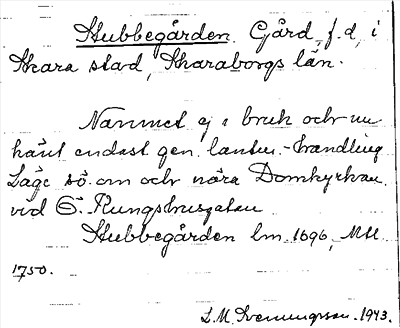 Stubbegården. Gård, f.d, i
Skara stad, Skaraborgs län.
Namnet ej i bruk och nu
känt endast gen. lantm.-handling
Läge sö. om och nära Domkyrkan
vid Ö. Kungshusgatan
Stubbegården lm. 1696, MU
1750.
L.M. Svenungsson. 1943.